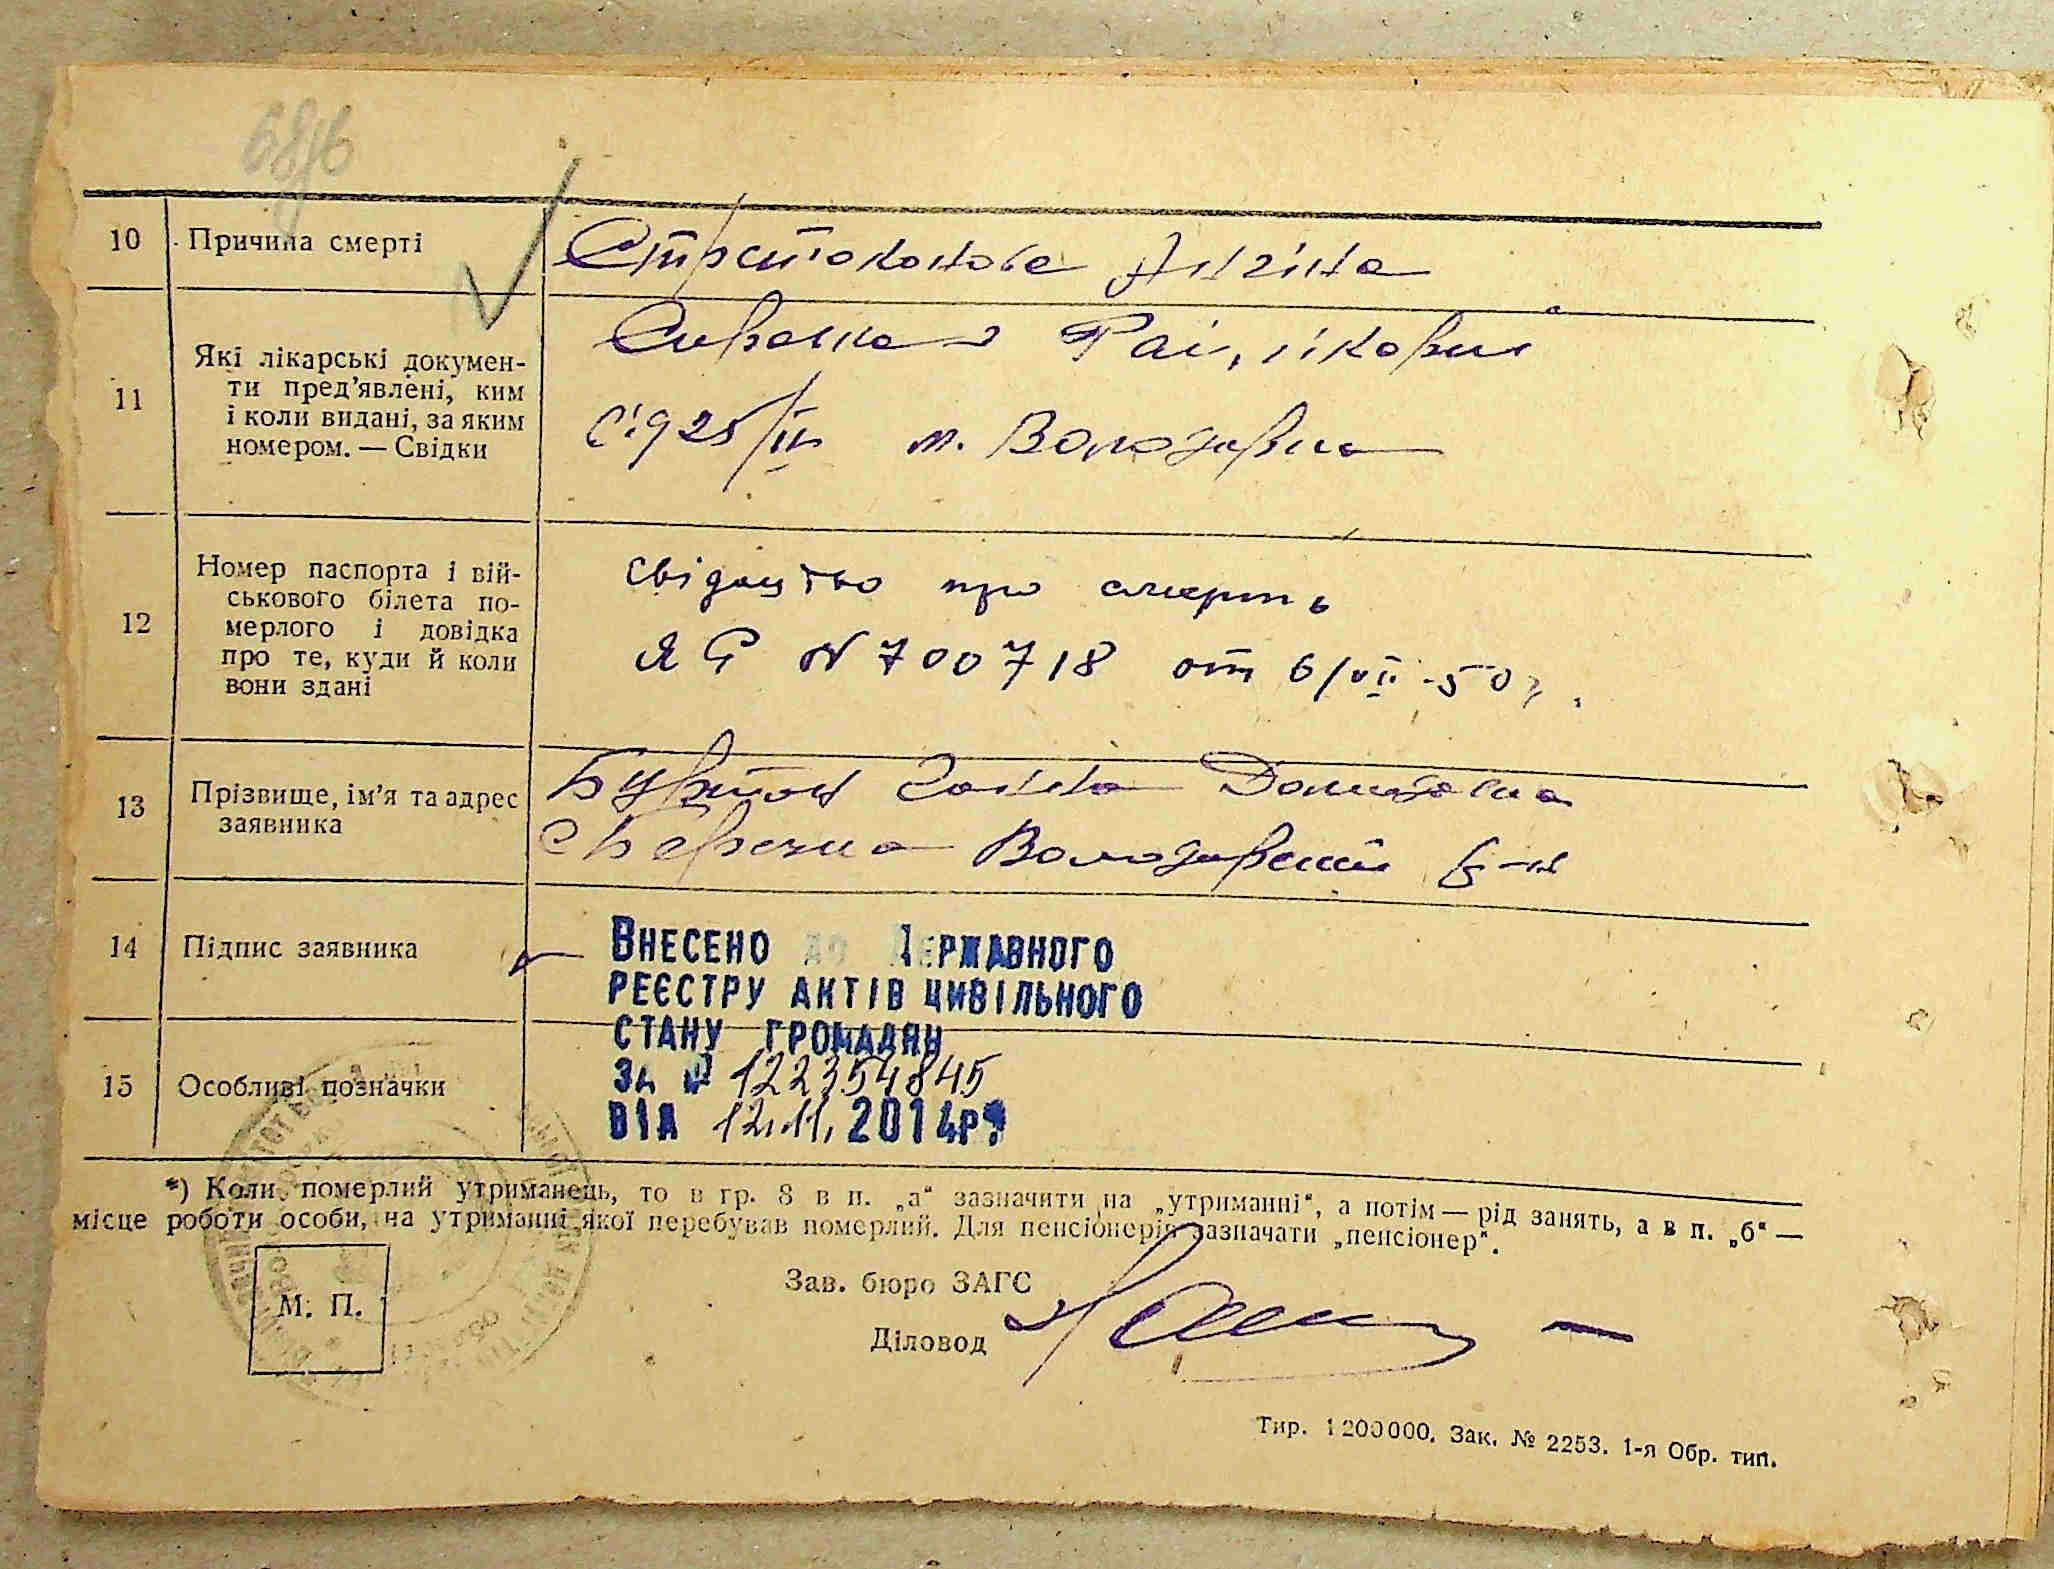 10 Причина смерті
Стрептококова Ангіна
11 Які лікарські докумен-
ти пред'явлені, ким
і коли видані, за яким
номером. — Свідки
Справка Рай лікарні
м. Володарка
12 Номер паспорта і вій-
ськового білета по-
мерлого і довідка
про те, куди й коли
вони здані
свідоцтво про смерть
ЯЄ N 700718 от 6/VII-50г.
13 Прізвище, ім'я та адрес
заявника
Ганна
с Березна Володарський р-н
14 Підпис заявника
ВНЕСЕНО ДО ДЕРЖАВНОГО
РЕЄСТРУ АКТІВ ЦИВІЛЬНОГО
СТАНУ ГРОМАДЯН
ЗА № 122354845
ВІД 12.11.2014р.
15 Особливі позначки
*) Коли померлий утриманець, то в гр. 8 в п. „а“ зазначити на „утриманні“, а потім — рід занять, а в п. „б“ —
місце роботи особи, на утриманні якої перебував померлий. Для пенсіонерів зазначати „пенсіонер“.
М. П.
Зав. бюро ЗАГС
Діловод
Тир. 1200000. Зак. № 2253. 1-я Обр. тип.